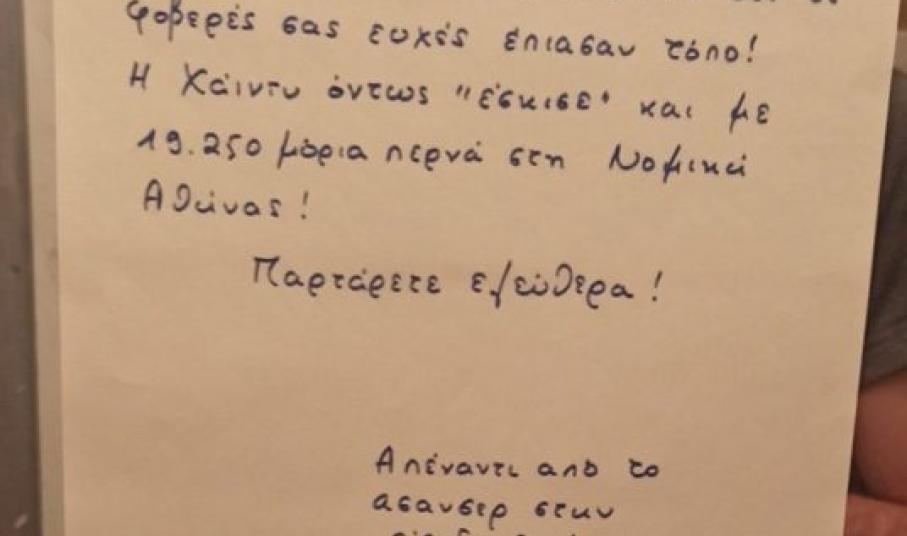 φοβερές σας ευχές έπιασαν τόπο!
Η Χάιντυ όντως "έσκισε" και με
19.250 μόρια περνά στη Νομική
Αθήνας!
Παρτάρετε ελεύθερα!
Απέναντι από το
ασανσερ στην